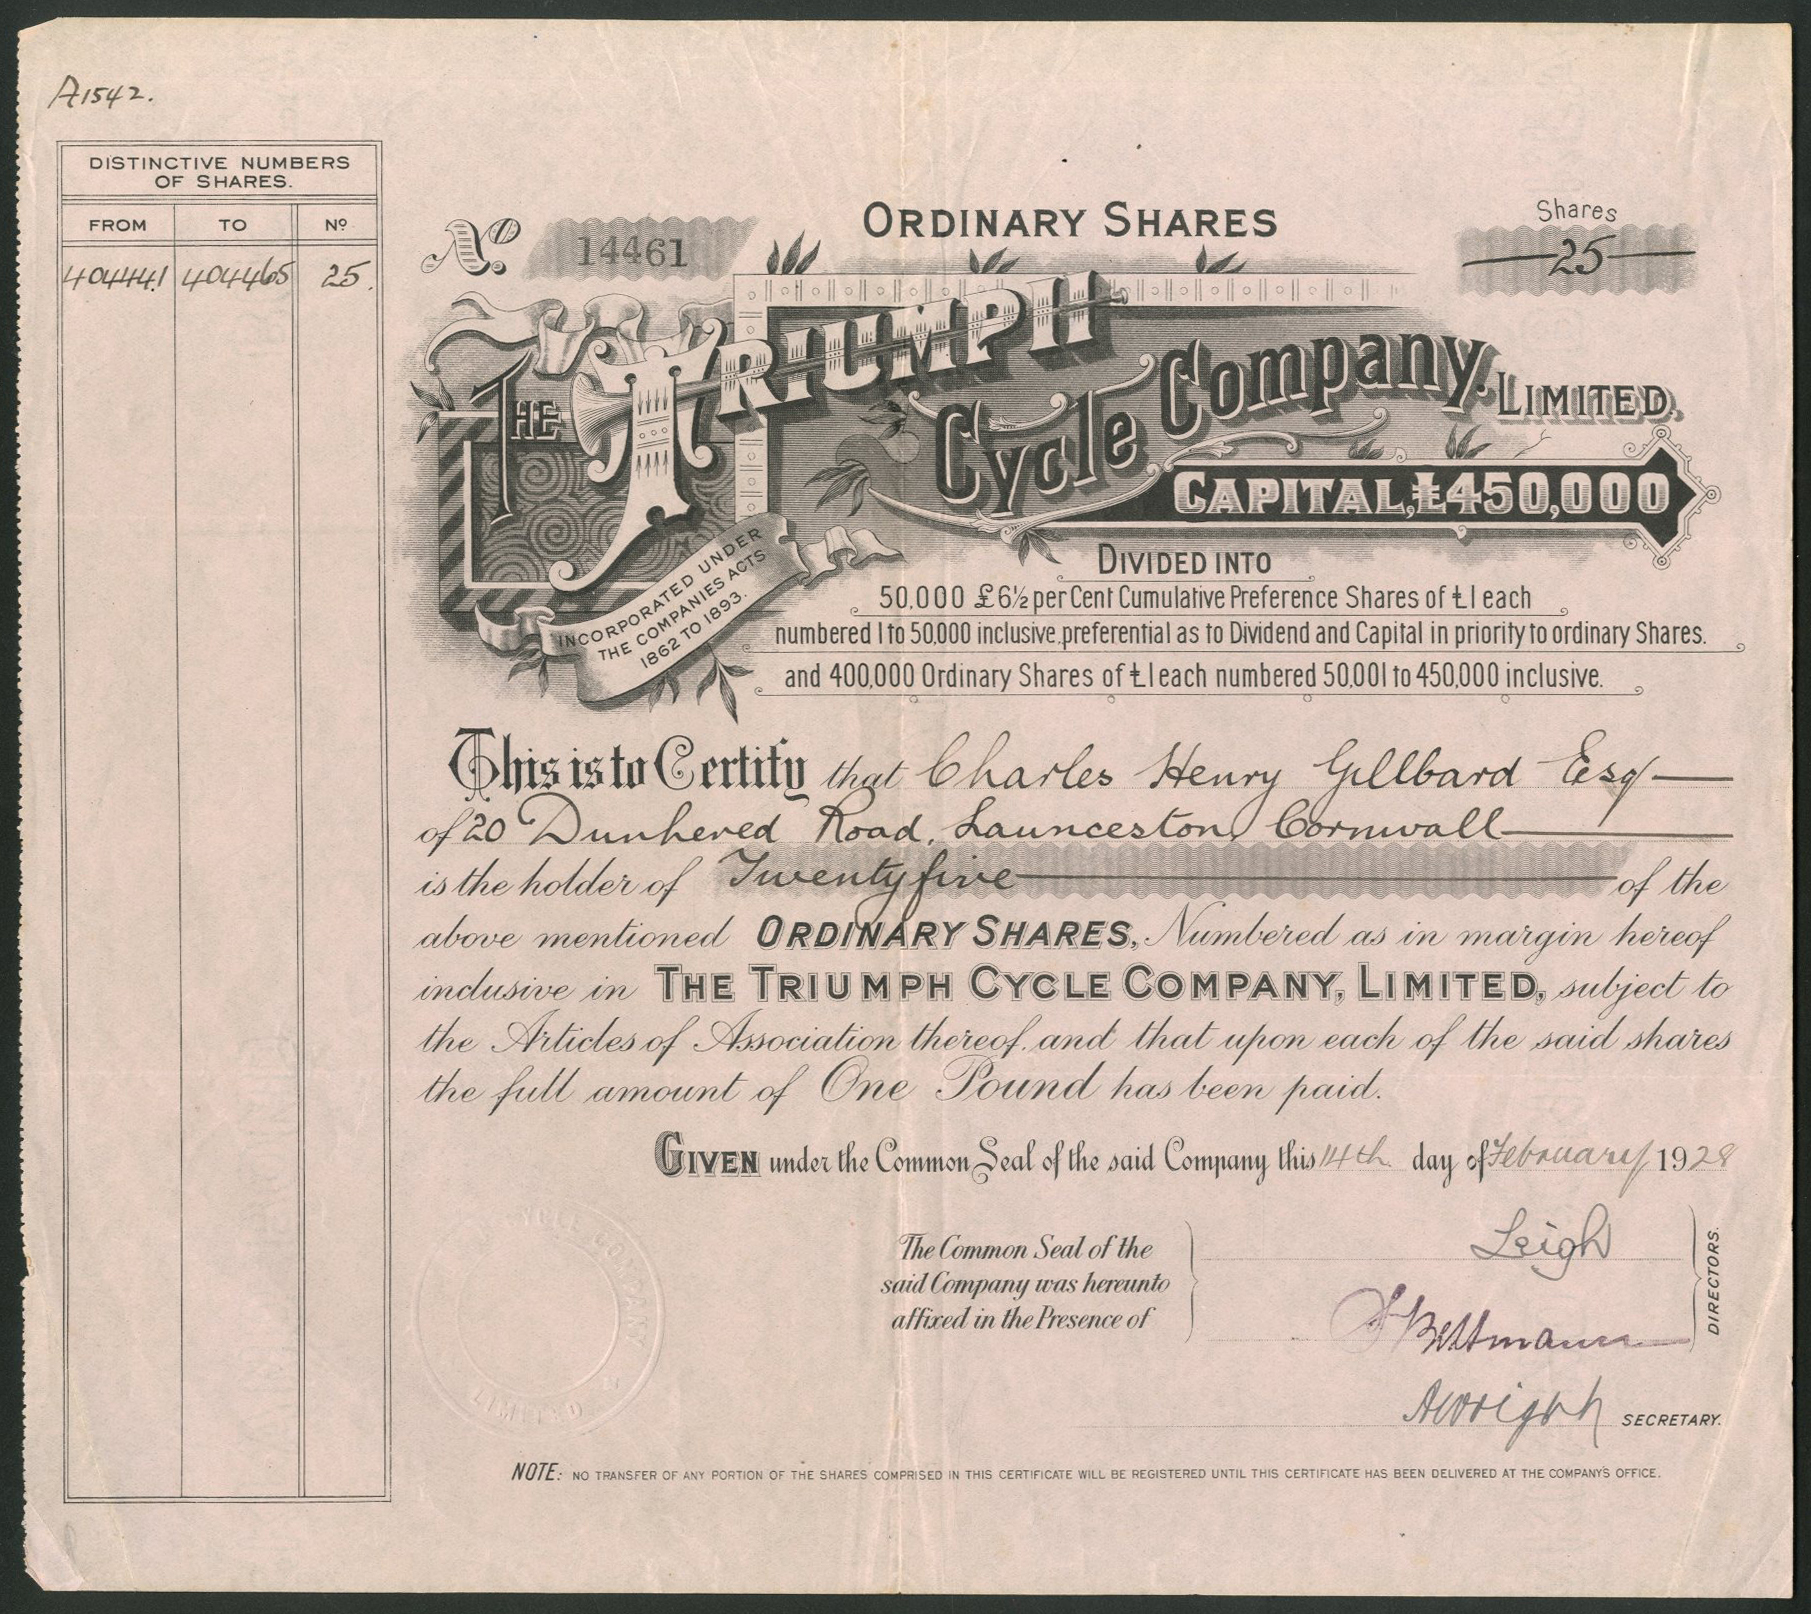 A1542.
DISTINCTIVE NUMBERS
OF SHARES.
FROM TO Nº
404441 404465 25.
Nº. 14461
ORDINARY SHARES
Shares
25
THE TRIUMPH
Cycle Company, LIMITED,
CAPITAL, £450,000
INCORPORATED UNDER
THE COMPANIES ACTS
1862 TO 1893.
DIVIDED INTO
50,000 £6½ per Cent Cumulative Preference Shares of £1 each
numbered 1 to 50,000 inclusive, preferential as to Dividend and Capital in priority to ordinary Shares.
and 400,000 Ordinary Shares of £1 each numbered 50,001 to 450,000 inclusive.
This is to Certify that Charles Henry Gillbard Esq
of 20 Dunheved Road, Launceston, Cornwall
is the holder of Twenty five of the
above mentioned ORDINARY SHARES, Numbered as in margin hereof
inclusive in THE TRIUMPH CYCLE COMPANY, LIMITED, subject to
the Articles of Association thereof, and that upon each of the said shares
the full amount of One Pound has been paid.
GIVEN under the Common Seal of the said Company this 14th day of February 1928
The Common Seal of the
said Company was hereunto
affixed in the Presence of
Leigh
S Bettmann
DIRECTORS.
AWright SECRETARY.
CYCLE COMPANY
LIMITED
NOTE: NO TRANSFER OF ANY PORTION OF THE SHARES COMPRISED IN THIS CERTIFICATE WILL BE REGISTERED UNTIL THIS CERTIFICATE HAS BEEN DELIVERED AT THE COMPANY'S OFFICE.